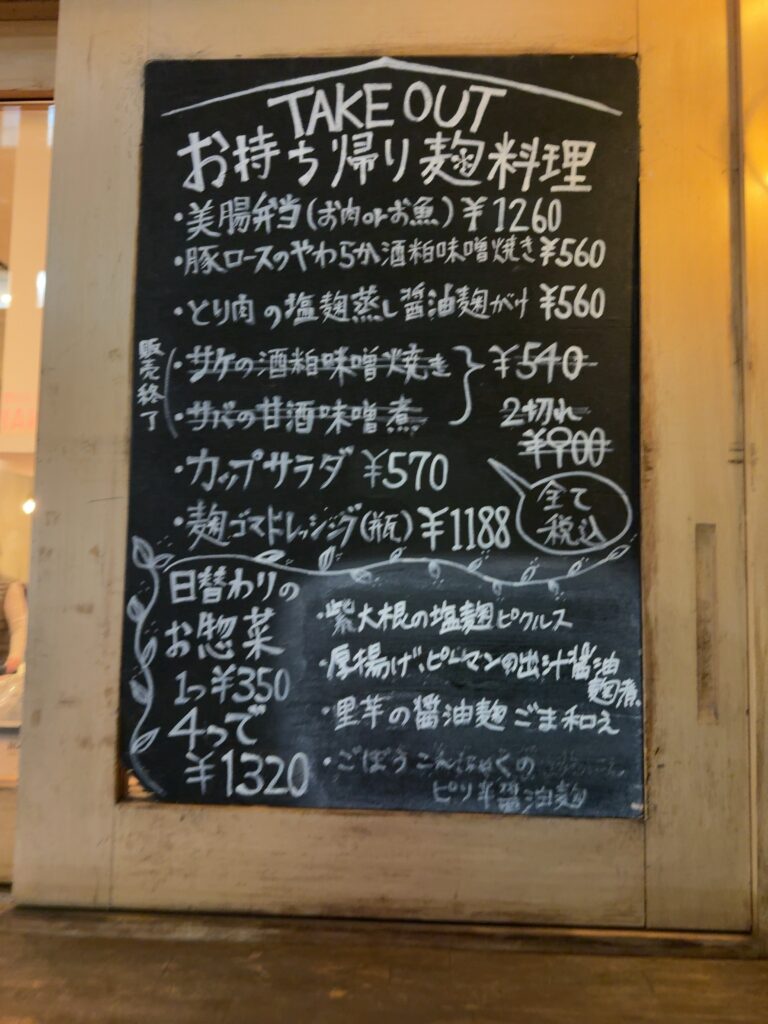 TAKE OUT
お持ち帰り麹料理
・美腸弁当(お肉orお魚)¥1260
・豚ロースのやわらか酒粕味噌焼き¥560
・とり肉の塩麹蒸し醤油麹がけ ¥560
販売終了
・サケの酒粕味噌焼き ¥540
・サバの甘酒味噌煮 2切れ
¥900
・カップサラダ ¥570
・麹ゴマドレッシング(瓶)¥1188
全て
税込
日替わりの
お惣菜
1つ¥350
4つで
¥1320
・紫大根の塩麹ピクルス
・厚揚げ、ピーマンの出汁醤油
麹煮
・里芋の醤油麹ごま和え
・ごぼうこんにゃくの
ピリ辛醤油麹